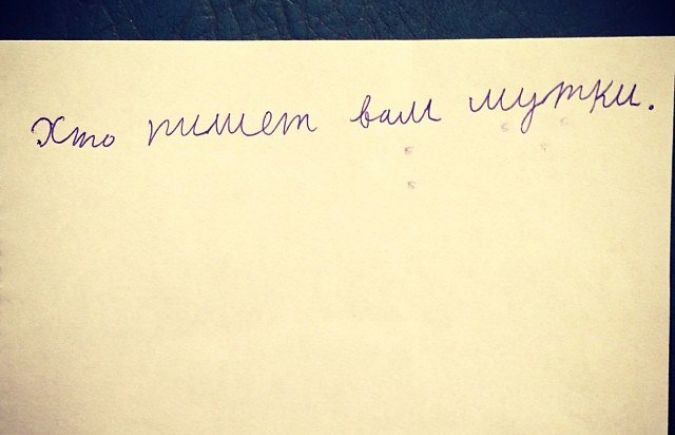 Хто пишет вам шутки.